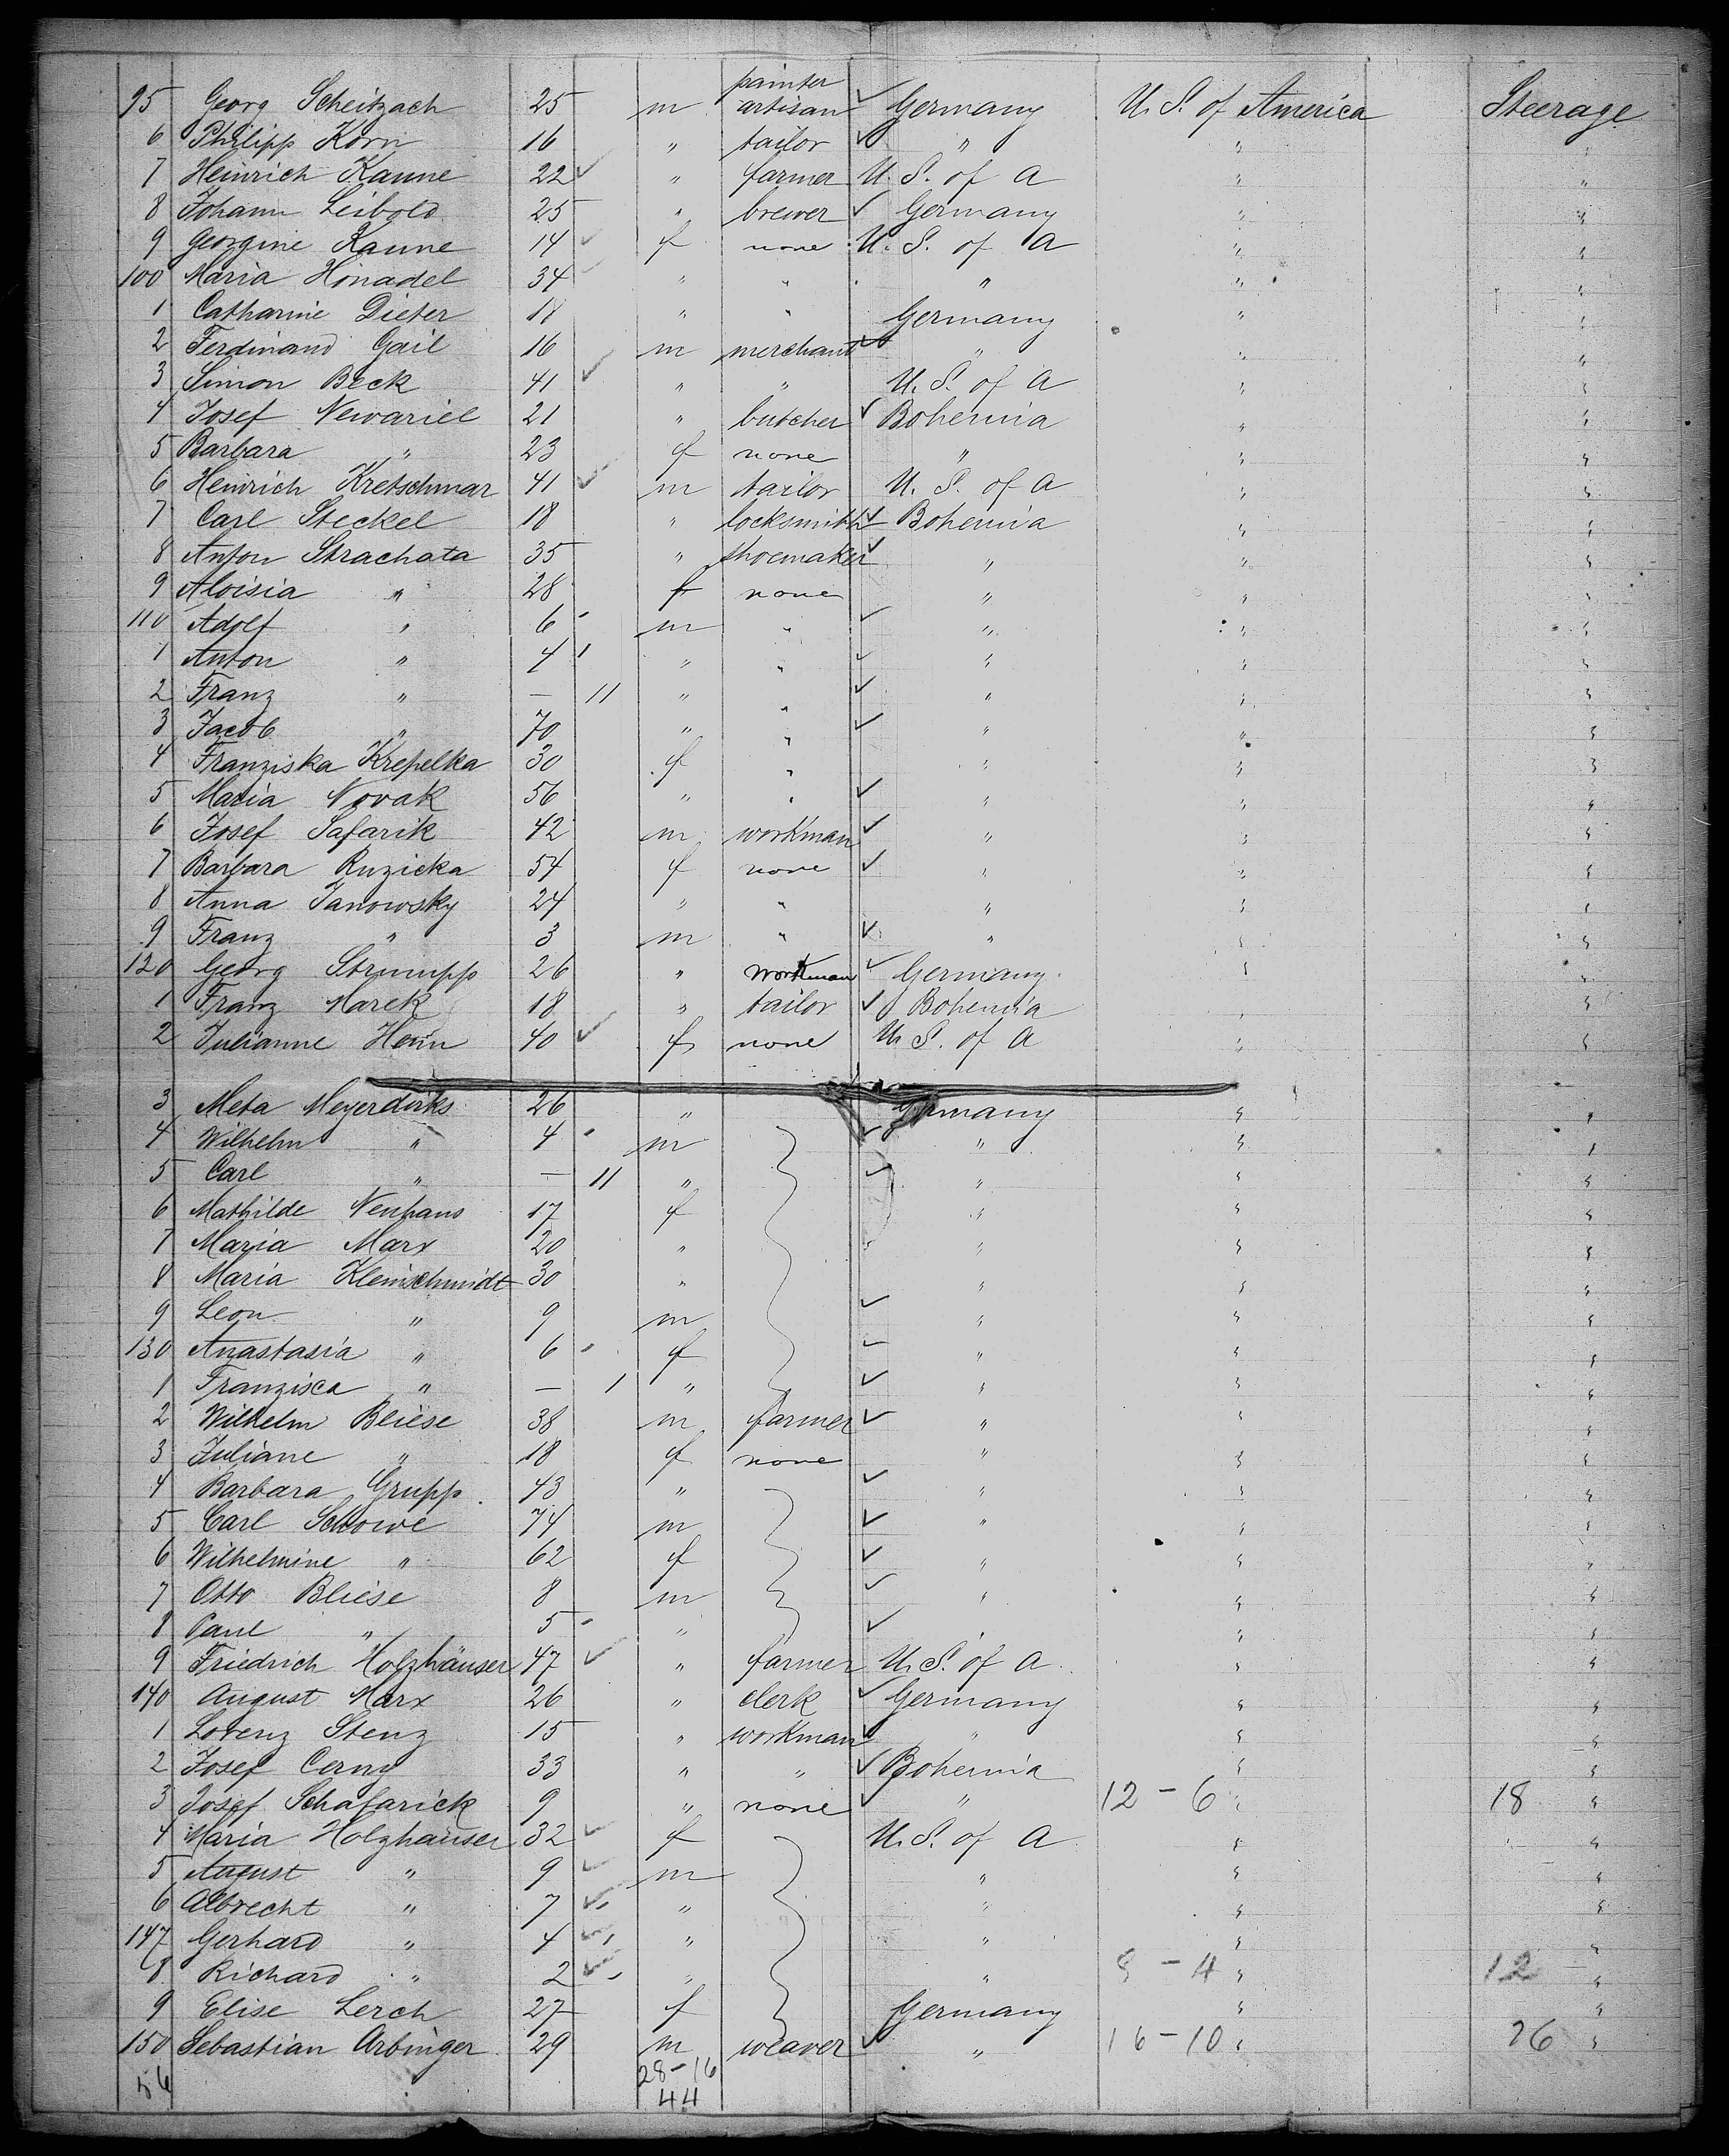 painter
95 Georg Scheitzach 25 m artisan ✓ Germany U. S. of America Steerage
6 Philipp Korn 16 " tailor ✓ " " "
7 Heinrich Kaune 22 ✓ " farmer U. S. of A " "
8 Johann Leibold 25 " brewer ✓ Germany " "
9 Georgine Kaune 14 ✓ f none U. S. of A " "
100 Maria Honadel 34 ✓ " " " " "
1 Catharine Dieter 18 " " Germany " "
2 Ferdinand Gail 16 m merchant ✓ " " "
3 Simon Beck 41 ✓ " " U. S. of A " "
4 Josef 21 " butcher ✓ Bohemia " "
5 Barbara " 23 f none " " "
6 Heinrich Kretschmar 41 ✓ m tailor U. S. of A " "
7 Carl Steckel 18 " locksmith ✓ Bohemia " "
8 Anton Strachata 35 " shoemaker ✓ " " "
9 Aloisia " 28 f none " " "
110 Adolf " 6 m " ✓ " " "
1 Anton " 4 " " ✓ " " "
2 Franz " — 11 " " ✓ " " "
3 Jacob " 70 " " ✓ " " "
4 Franziska Krepelka 30 f " " " "
5 Maria Novak 56 " " ✓ " " "
6 Josef Safarik 42 m workman ✓ " " "
7 Barbara Ruzicka 54 f none ✓ " " "
8 Anna Janowsky 24 " " " " "
9 Franz " 3 m " ✓ " " "
120 Georg Strumpp 26 " workman ✓ Germany " "
1 Franz Marek 18 " tailor ✓ Bohemia " "
2 Julianne Hein 40 ✓ f none U. S. of A " "
3 Meta Meyerdirks 26 " Germany " "
4 Wilhelm " 4 m ✓ " " "
5 Carl " — 11 " ✓ " " "
6 Mathilde Neuhaus 17 f " " "
7 Maria Marx 20 " " " "
8 Maria Kleinschmidt 30 " " " "
9 Leon " 9 m ✓ " " "
130 Anastasia " 6 f ✓ " " "
1 Franzisca " — 1 " ✓ " " "
2 Wilhelm Bliese 38 m farmer ✓ " " "
3 Juliane " 18 f none " " "
4 Barbara Grupp 43 " ✓ " " "
5 Carl Schowe 74 m ✓ " " "
6 Wilhelmine " 62 f ✓ " " "
7 Otto Bliese 8 m ✓ " " "
8 Paul " 5 " ✓ " " "
9 Friedrich Holzhäuser 47 ✓ " farmer U. S. of A " "
140 August Marx 26 " clerk ✓ Germany " "
1 Lorenz Stenz 15 " workman ✓ " " "
2 Josef Cerny 33 " " ✓ Bohemia " "
3 Josef Schafarick 9 " none ✓ " 12 - 6 " 18 "
4 Maria Holzhäuser 32 ✓ f U. S. of A " "
5 August " 9 ✓ m " " "
6 Albrecht " 7 ✓ " " " "
147 Gerhard " 4 ✓ " " " "
8 Richard " 2 ✓ " " 8 - 4 " 12 "
9 Elise Lerch 27 f Germany " "
150 Sebastian Arbinger 29 m weaver ✓ " 16 - 10 " 26 "
56 28-16
44